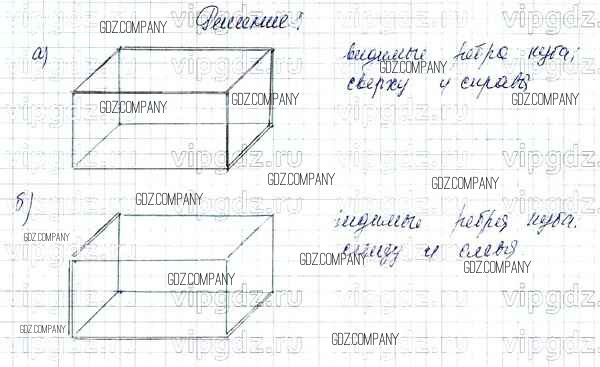 Решение:
GDZ.COMPANY
vipgdz.ru vipgdz.ru vipgdz.ru
а)
видимые ребра куба;
GDZ.COMPANY
сверху и справа
GDZ.COMPANY
GDZ.COMPANY
GDZ.COMPANY
vipgdz.ru vipgdz.ru vipgdz.ru
GDZ.COMPANY
GDZ.COMPANY
GDZ.COMPANY
б)
видимые ребра куба.
GDZ.COMPANY
снизу и слева
GDZ.COMPANY
GDZ.COMPANY
GDZ.COMPANY
vipgdz.ru vipgdz.ru vipgdz.ru
GDZ.COMPANY
GDZ.COMPANY
vipgdz.ru vipgdz.ru vipgdz.ru